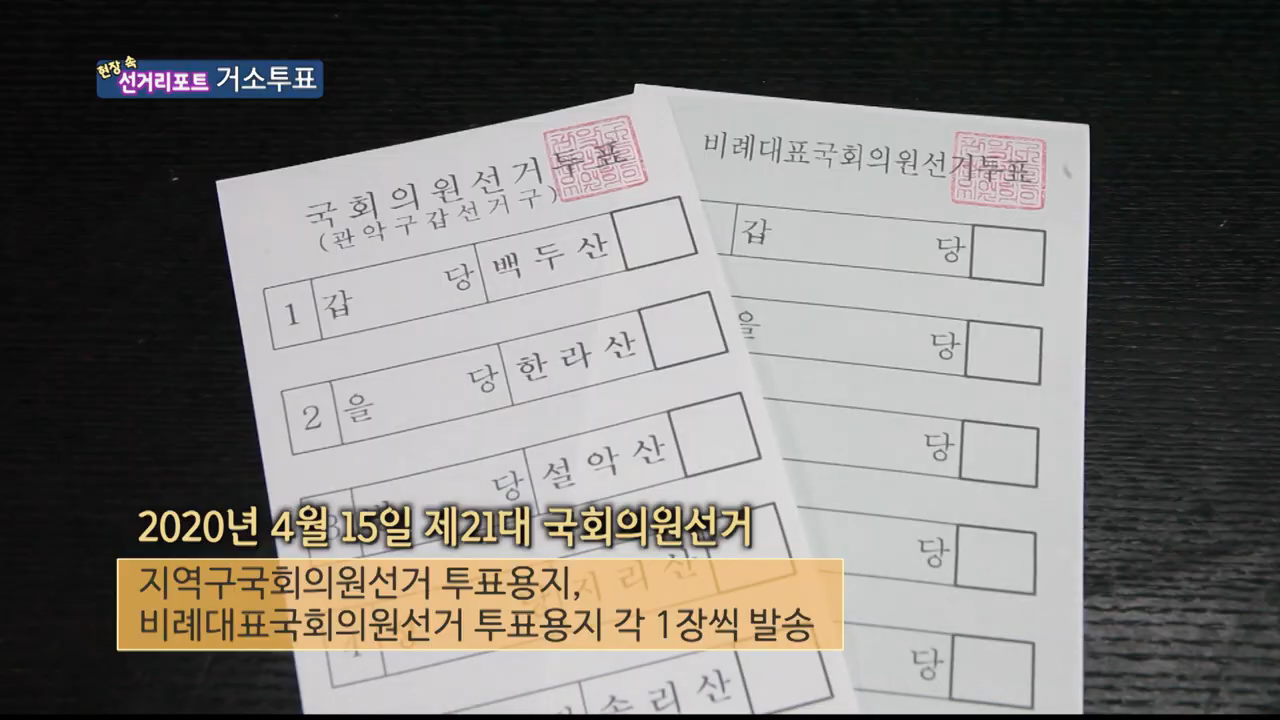 현장 속
선거리포트 거소투표
국회의원선거투표
(관악구갑선거구)
1 갑 당 백두산
2 을 당 한라산
3 당 설악산
4 지리산
속리산
비례대표국회의원선거투표
갑 당
을 당
당
당
당
2020년 4월 15일 제21대 국회의원선거
지역구국회의원선거 투표용지,
비례대표국회의원선거 투표용지 각 1장씩 발송